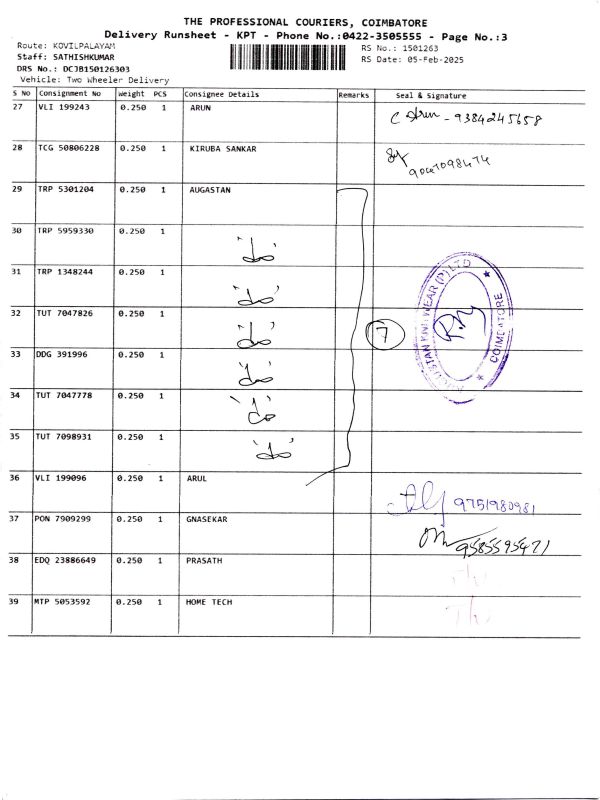 THE PROFESSIONAL COURIERS, COIMBATORE
Delivery Runsheet - KPT - Phone No.:0422-3505555 - Page No.:3
Route: KOVILPALAYAM
RS No.: 1501263
Staff: SATHISHKUMAR
RS Date: 05-Feb-2025
DRS No.: DCJB150126303
Vehicle: Two Wheeler Delivery
S No Consignment No Weight PCS Consignee Details Remarks Seal & Signature
27 VLI 199243 0.250 1 ARUN
C Arun - 9384245658
28 TCG 50806228 0.250 1 KIRUBA SANKAR
29 TRP 5301204 0.250 1 AUGASTAN
30 TRP 5959330 0.250 1 "do"
31 TRP 1348244 0.250 1 "do"
32 TUT 7047826 0.250 1 "do"
7
33 DDG 391996 0.250 1 "do"
34 TUT 7047778 0.250 1 "do"
35 TUT 7098931 0.250 1 "do"
COIMBATORE
36 VLI 199096 0.250 1 ARUL
9751980981
37 PON 7909299 0.250 1 GNASEKAR
9585595471
38 EDQ 23886649 0.250 1 PRASATH
39 MTP 5053592 0.250 1 HOME TECH